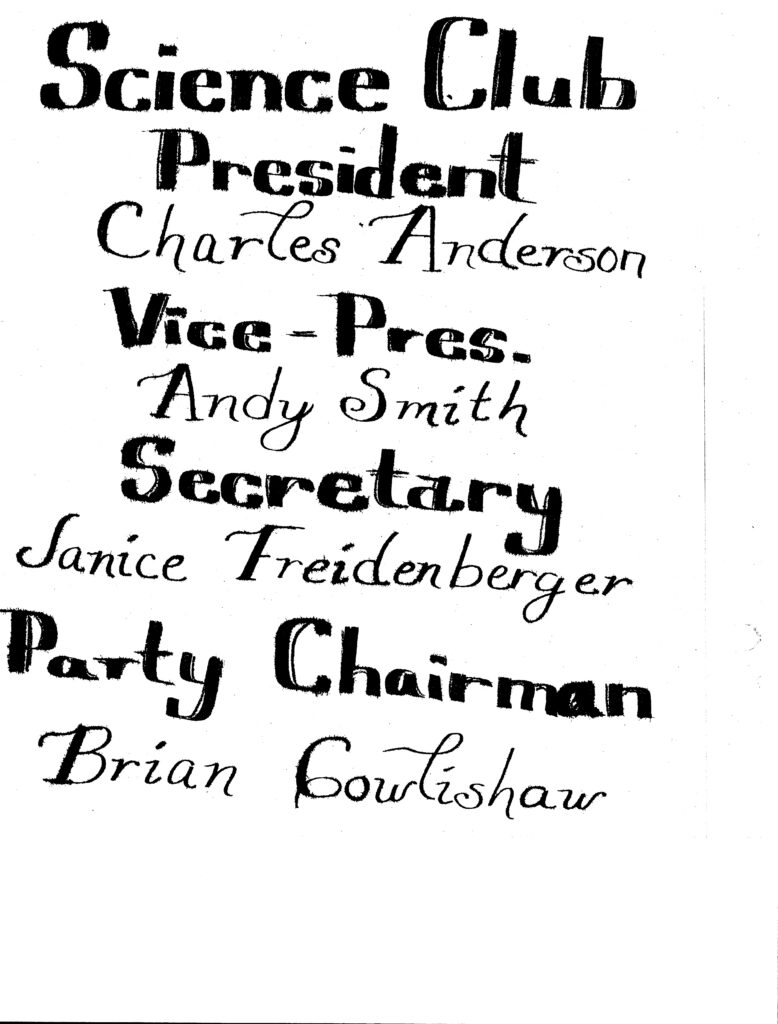 Science Club
President
Charles Anderson
Vice-Pres.
Andy Smith
Secretary
Janice Freidenberger
Party Chairman
Brian Cowlishaw